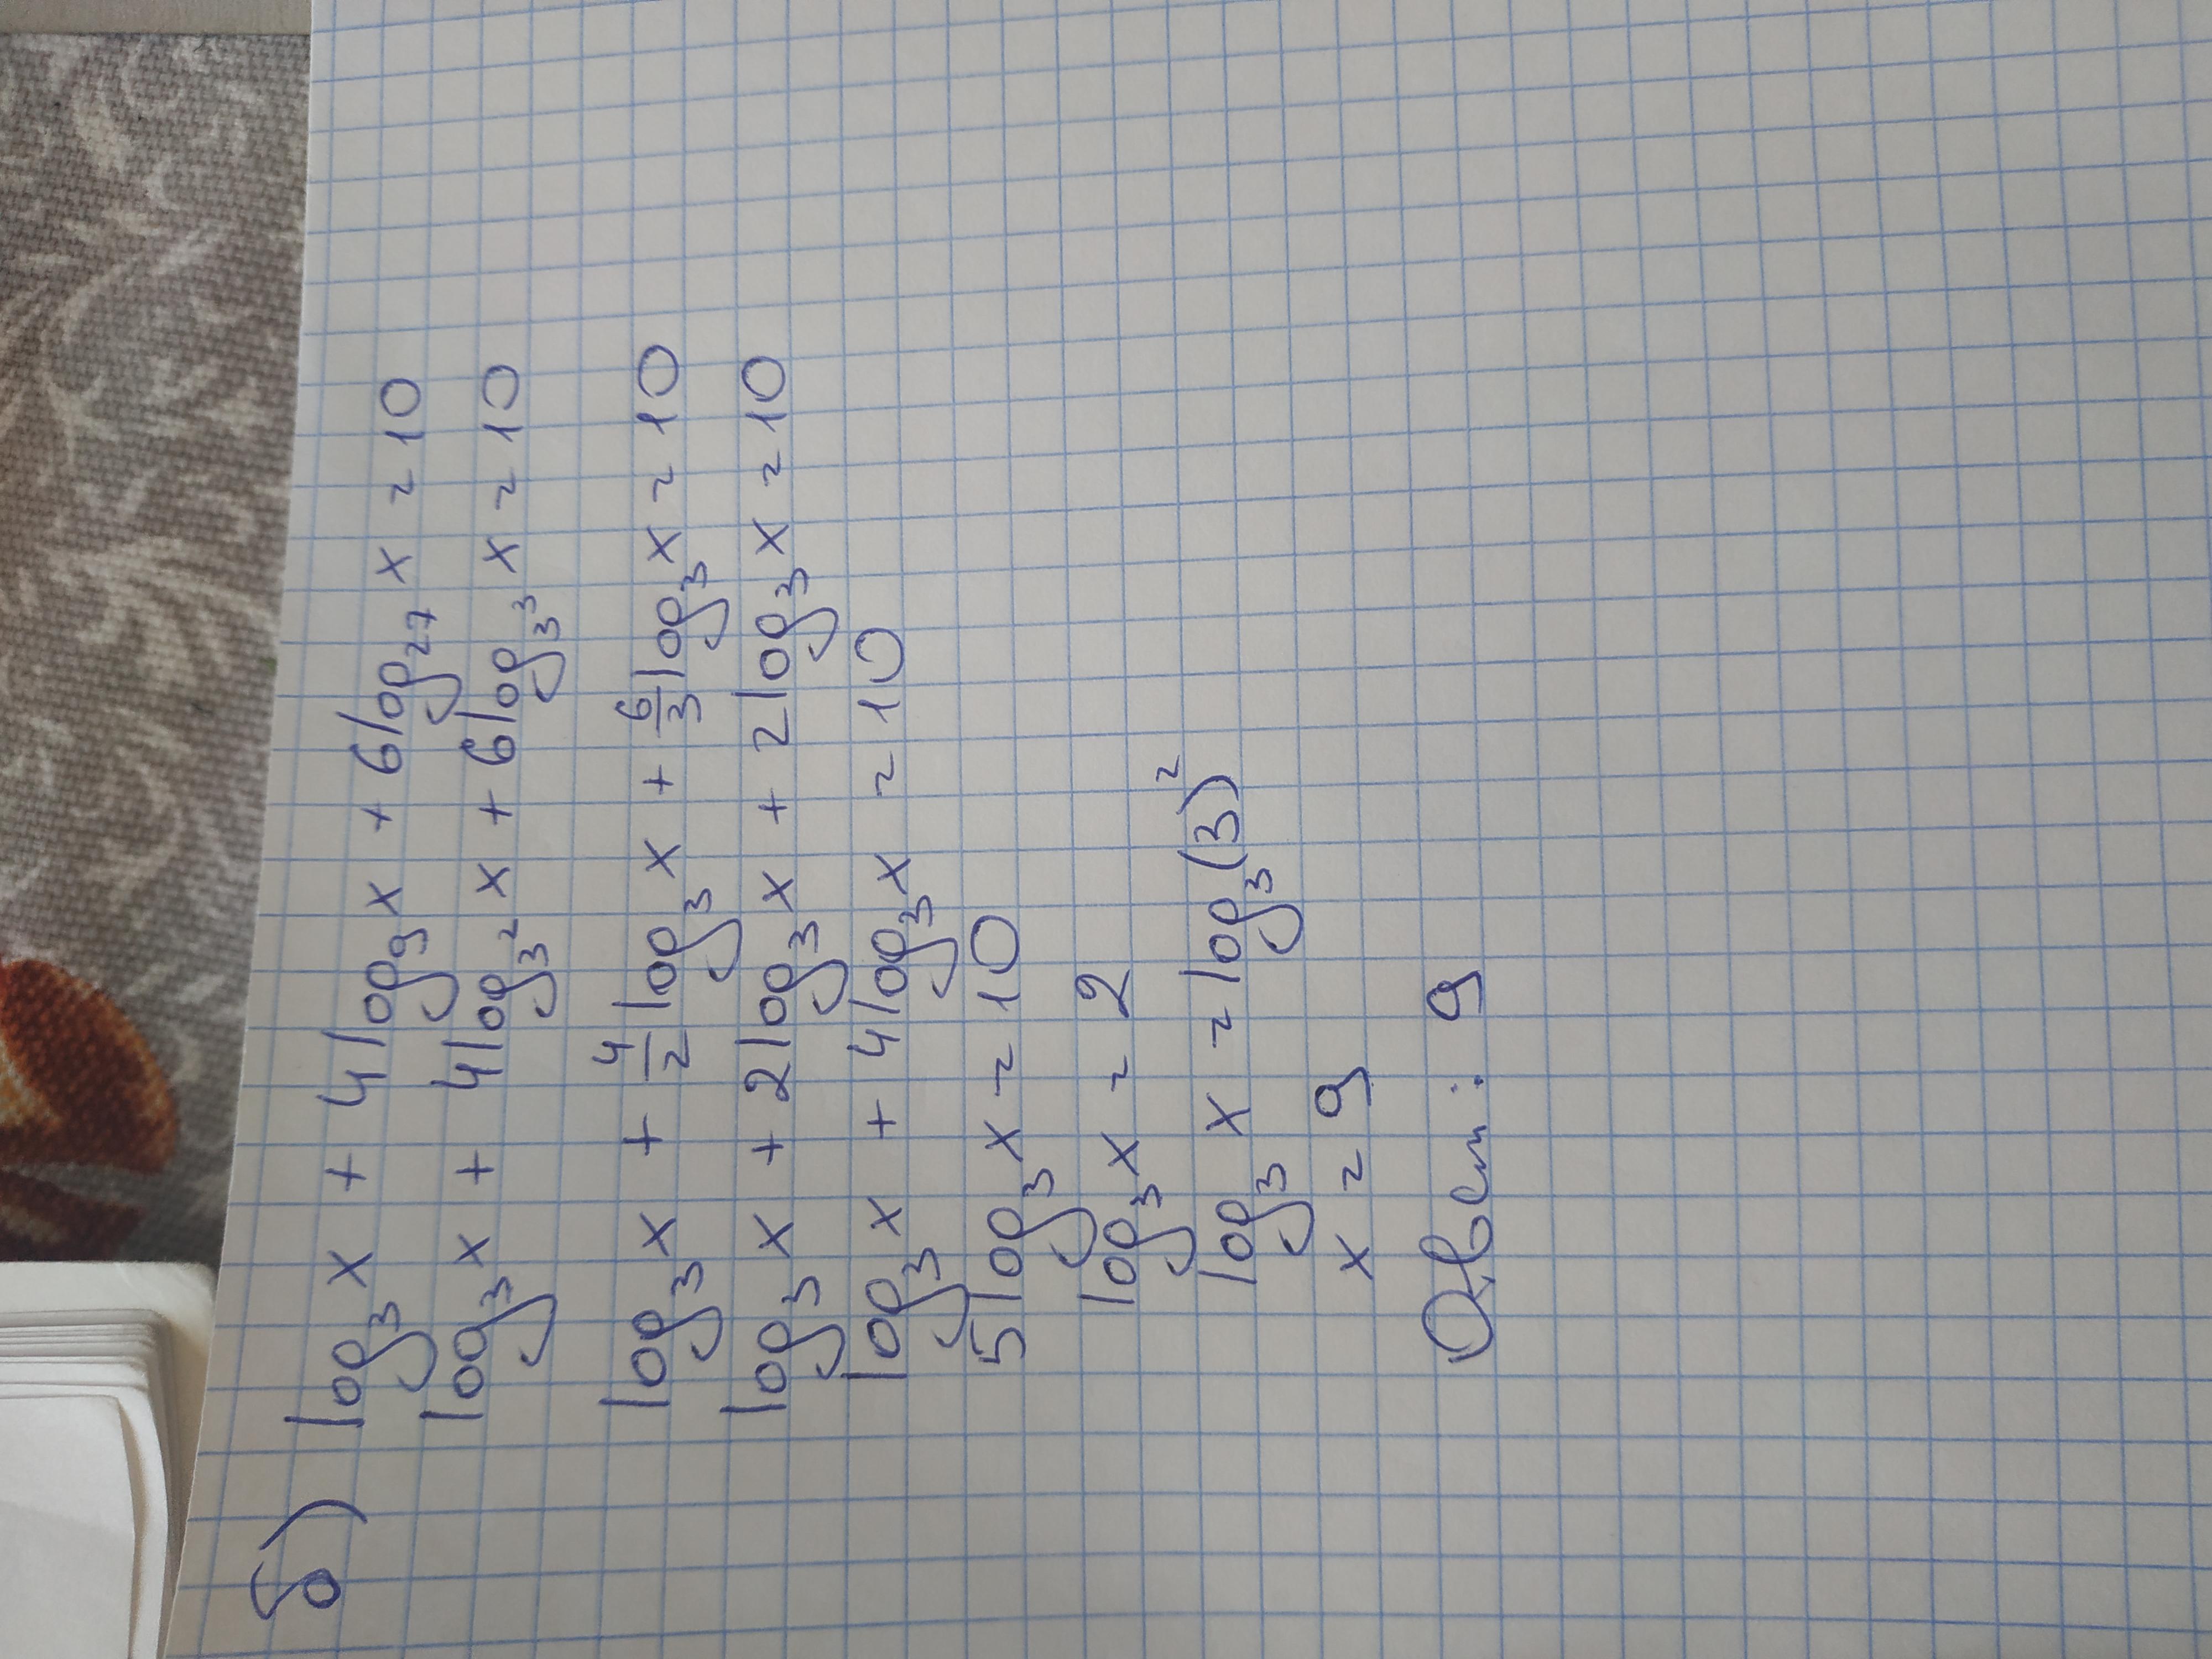 б) log₃x + 4log₉x + 6log₂₇x = 10
log₃x + 4log₃²x + 6log₃³x = 10
log₃x + 4/2 log₃x + 6/3 log₃x = 10
log₃x + 2log₃x + 2log₃x = 10
log₃x + 4log₃x = 10
5log₃x = 10
log₃x = 2
log₃x = log₃(3)²
x = 9
Ответ: 9